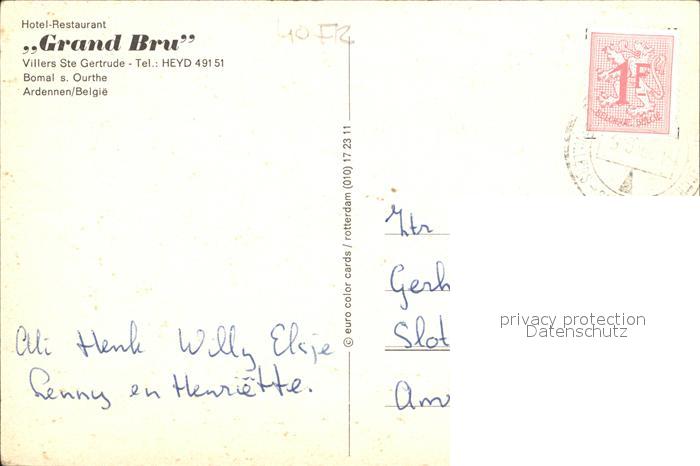 Hotel-Restaurant
„Grand Bru”
Villers Ste Gertrude - Tel.: HEYD 491 51
Bomal s. Ourthe
Ardennen/België
40 Fr
© euro color cards / rotterdam (010) 17 23 11
1F
BELGIQUE BELGIE
Htr
Gerh
Slot
Am
privacy protection
Datenschutz
Ali Henk Willy Elsje
Lenny en Henriëtte.